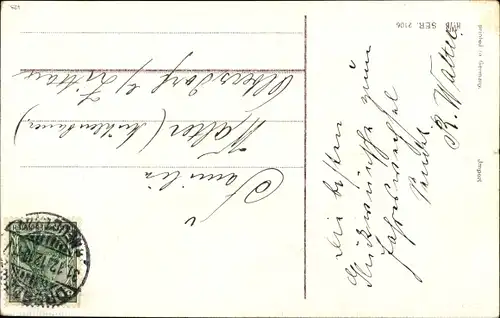 Die besten
Glückwünsche zum
Jahreswechsel
sendet
R. Walter
Familie
Walter (Mühlenbauer)
Olbersdorf b/ Zittau
SER. 2106
printed in Germany.
Import